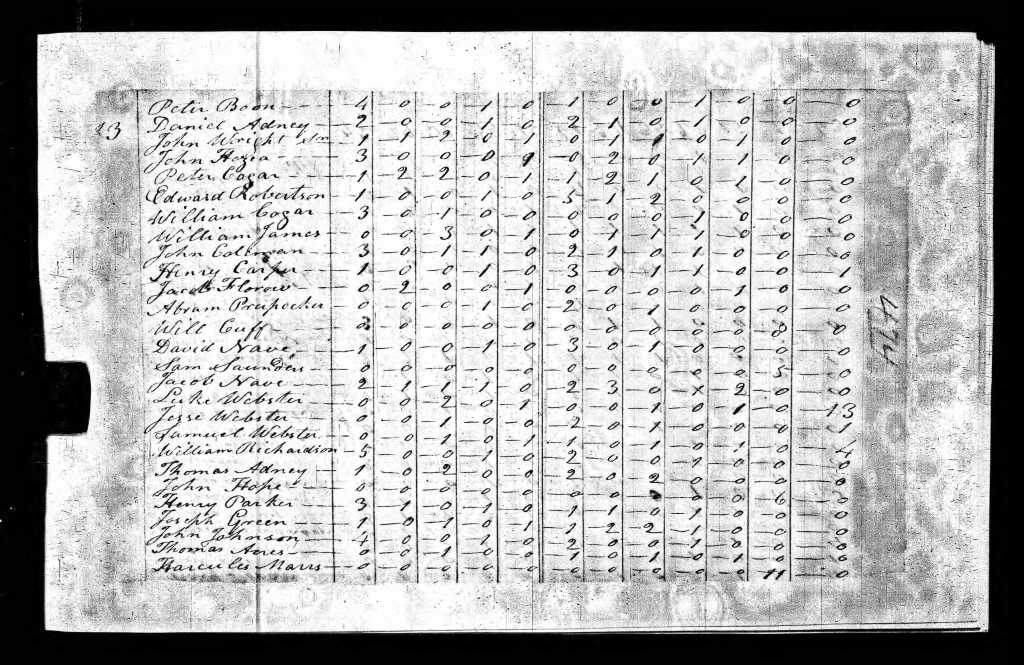 Peter Boon 4 0 0 1 0 1 0 0 1 0 0 0
13 Daniel Adney 2 0 0 1 0 2 1 0 1 0 0
John Wright 1 1 2 0 1 0 1 0 1 0 0
John Hozea 3 0 0 0 0 2 0 1 1 0 0
Peter Cogar 1 2 2 0 1 1 2 1 0 1 0 0
Edward Robertson 1 0 0 1 0 5 1 2 0 0 0 0
William Cogar 3 0 1 0 0 0 0 0 1 0 0 0
William James 0 0 3 0 1 0 1 1 1 0 0 0
John Coleman 3 0 1 1 0 2 1 0 1 0 0 0
Henry Carper 1 0 0 1 0 3 0 1 1 0 0 1
Jacob Florow 0 2 0 0 1 0 0 0 0 1 0 0
Abram 0 0 0 1 0 2 0 1 0 0 0 0
Will Cuff 0 0 0 0 0 0 0 0 0 8 0
David Nave 1 0 0 1 0 3 0 1 0 0 0 0
Sam Saunders 0 0 0 0 0 0 0 0 0 0 5 0
Jacob Nave 2 1 1 1 0 2 3 0 2 0 0
Luke Webster 0 0 2 0 1 0 0 1 0 1 0 13
Jesse Webster 0 0 1 0 0 2 0 1 0 0 8 1
Samuel Webster 0 0 1 0 1 1 0 1 0 1 0
William Richardson 5 0 0 1 0 2 0 0 1 0 0 4
Thomas Adney 1 0 2 0 0 2 0 0 0 0 0
John Hope 0 0 0 0 0 0 0 2 0 0 0 0
Henry Parker 3 1 0 1 0 1 1 0 0 6 0
Joseph Green 1 0 1 0 1 1 2 2 1 0 0 0
John Johnson 4 0 0 1 0 2 0 0 1 0 0 0
Thomas Acres 0 0 1 0 0 1 0 1 0 1 0 0
Harculis Marrs 0 0 0 0 0 0 0 0 0 0 11 0
424